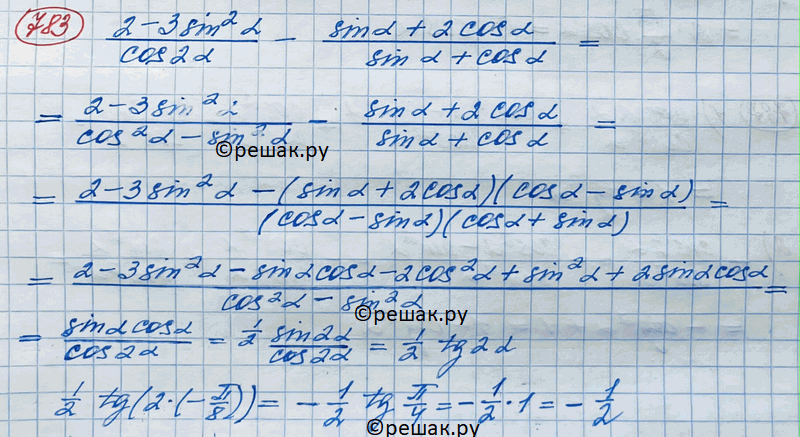 783 (2 - 3 sin² α)/(cos 2α) - (sin α + 2 cos α)/(sin α + cos α) =
= (2 - 3 sin² α)/(cos² α - sin² α) - (sin α + 2 cos α)/(sin α + cos α) =
©решак.ру
= (2 - 3 sin² α - (sin α + 2 cos α)(cos α - sin α))/((cos α - sin α)(cos α + sin α)) =
= (2 - 3 sin² α - sin α cos α - 2 cos² α + sin² α + 2 sin α cos α)/(cos² α - sin² α) =
©решак.ру
= (sin α cos α)/(cos 2α) = 1/2 (sin 2α)/(cos 2α) = 1/2 tg 2α
1/2 tg(2·(-π/8)) = -1/2 tg π/4 = -1/2 · 1 = -1/2
©решак.ру